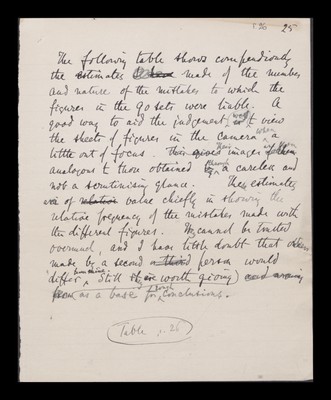 p.26 25
The following table shows compendiously
the estimates made of the number
and nature of the mistakes to which the
figures in the 90 sets were liable. A
good way to aid the judgement, was to view
the sheets of figures in the camera, when a
little out of focus. This gives their images
analogous to those obtained through a careless and
not a scrutinising glance. These estimates
are of relative value chiefly in showing the
relative frequency of the mistakes made with
the different figures. They cannot be trusted
overmuch, and I have little doubt that others
made by a second a third person would
differ. Still it is worth giving) and
as a base for rough conclusions.
Table p. 26